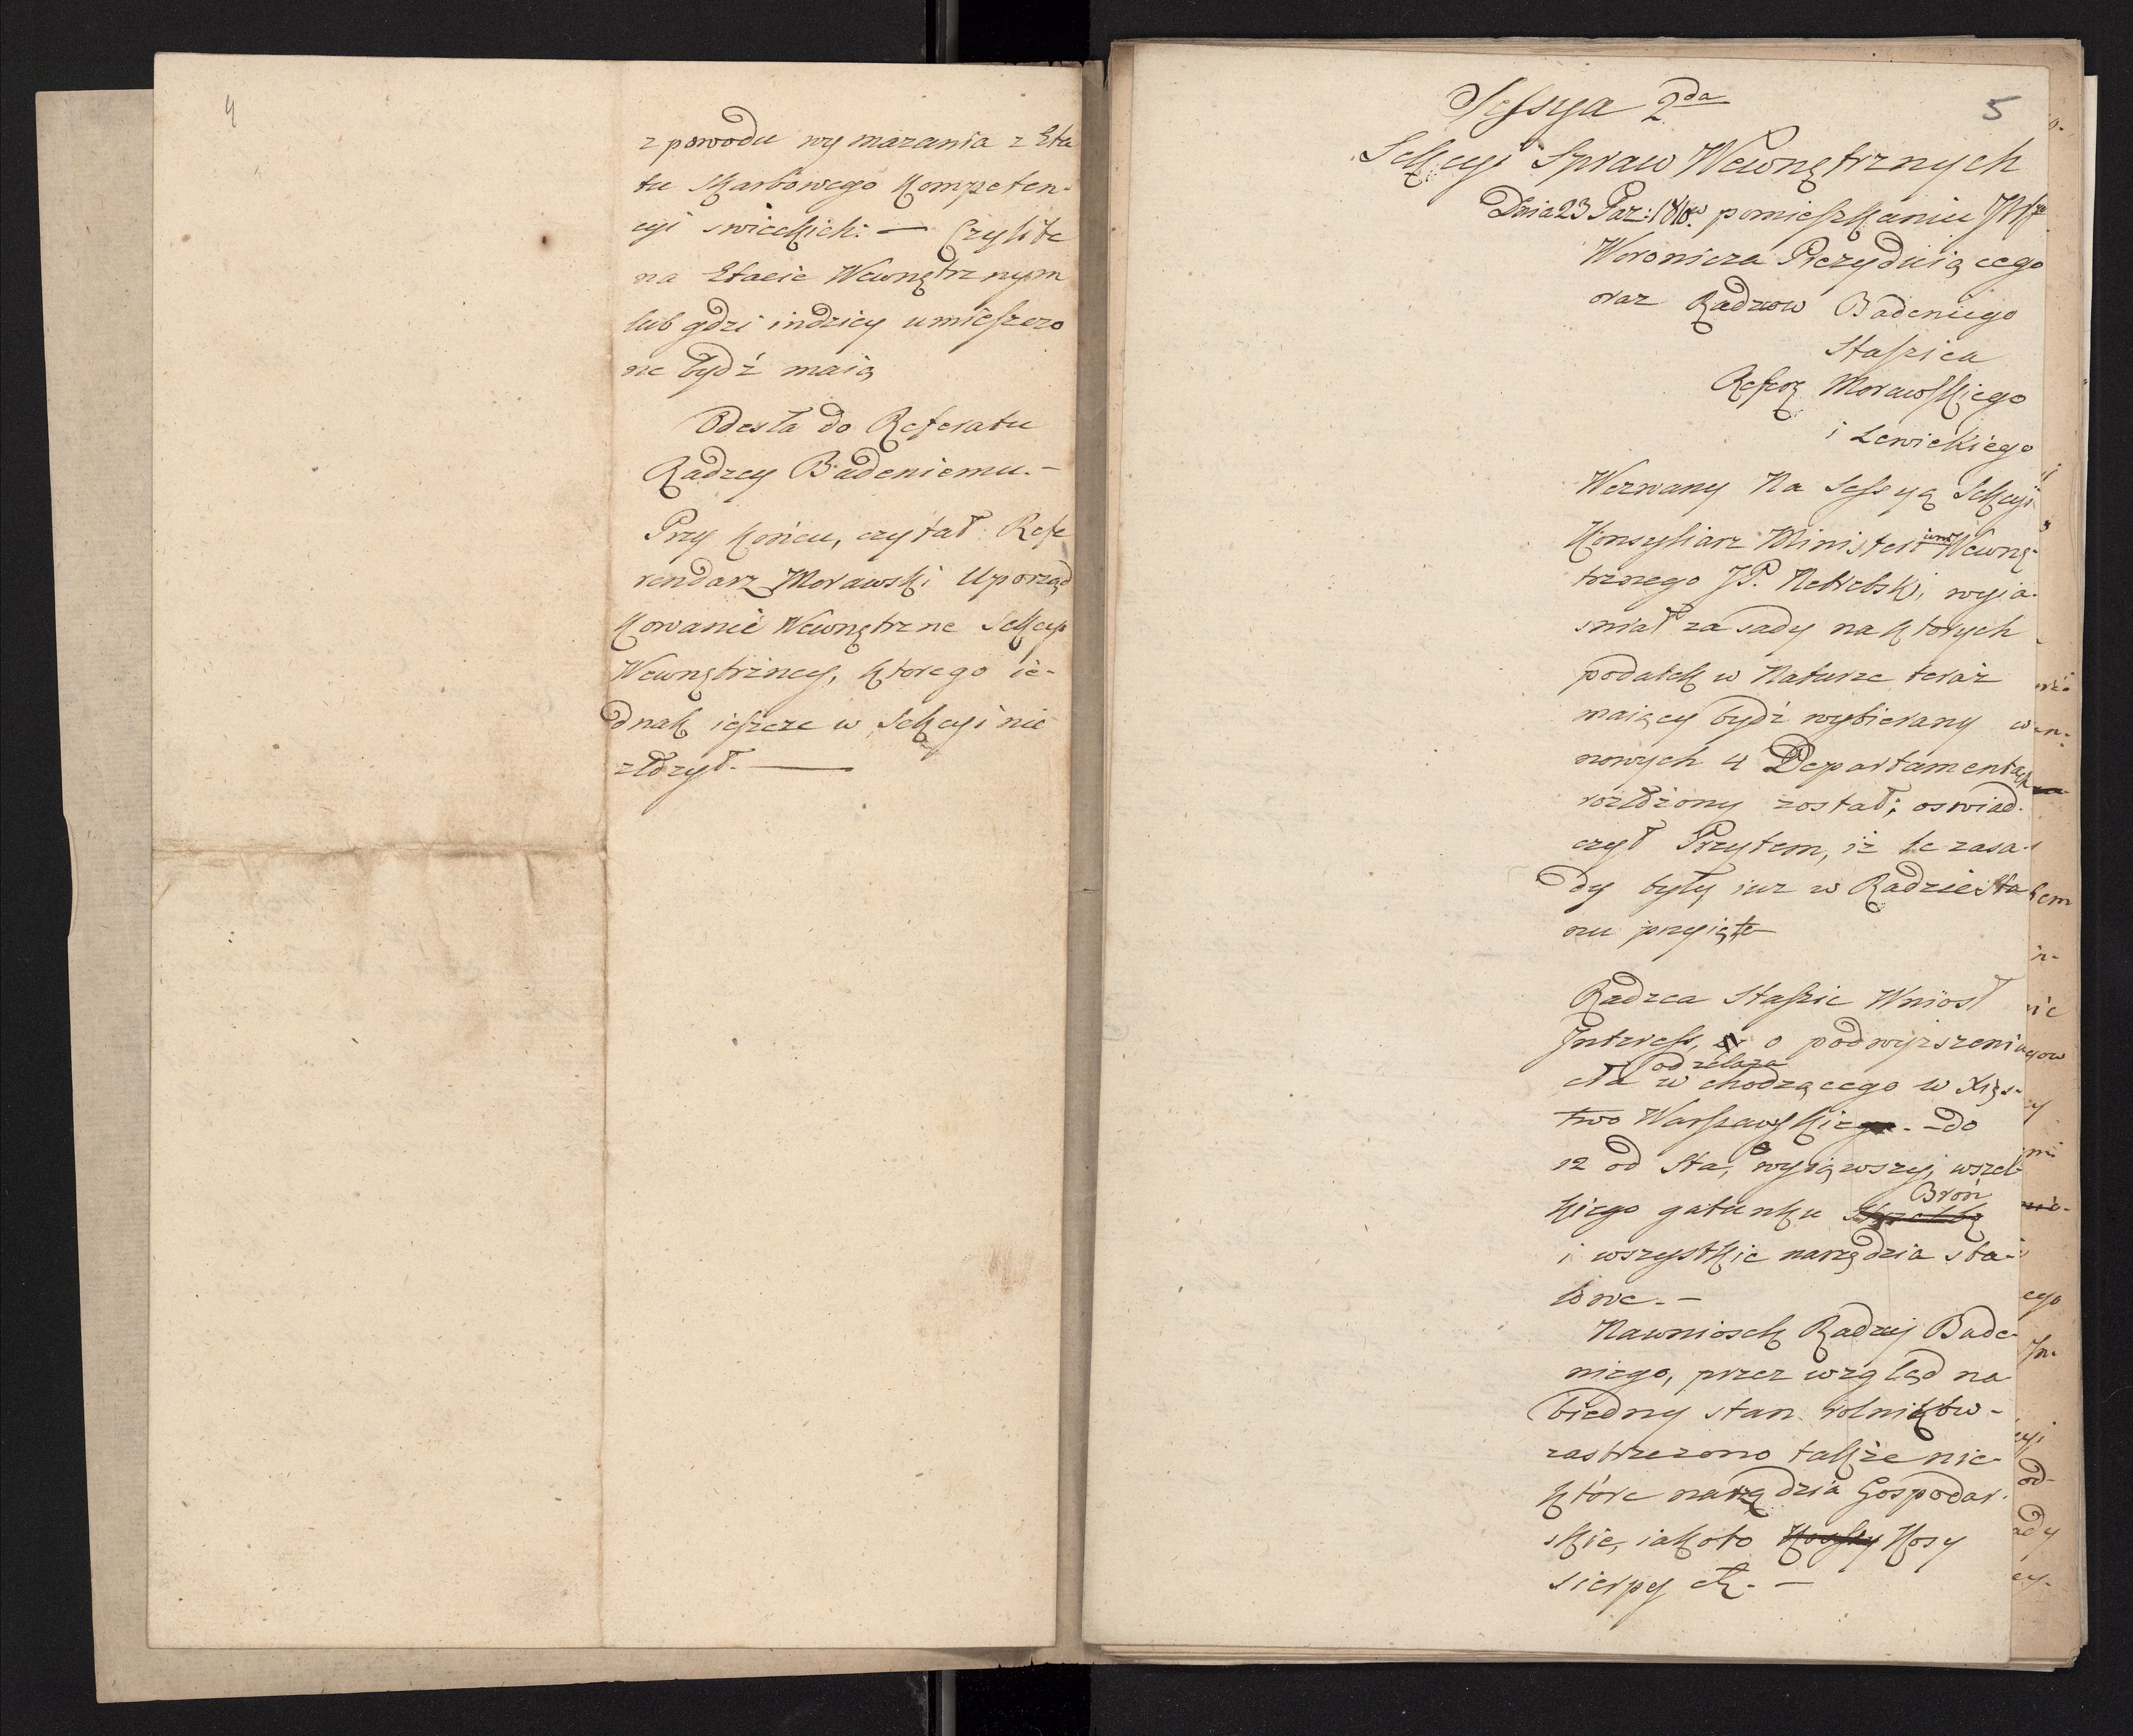 4
z powodu wymazania z Eta
tu Skarbowego Kompeten-
cyi swieckich: — Czyli te
na Etacie Wewnętrznym
lub gdzi indziey umieszczo
ne bydź maią
Odesła do Referatu
Radzcy Badeniemu. —
Przy końcu, czytał Refe
rendarz Morawski Uporząd
kowanie Wewnętrzne Sekcyi
Wewnętrzney, ktorego ie-
dnak ieszcze w Sekcyi nie
złożył. —
5
Sessya 2da
Sekcyi Spraw Wewnętrznych
Dnia 23 Paz: 1810. w pomieszkaniu
Woronicza Prezyduiącego
oraz Radzcow Badeniego
Staszica
Referę Morawskiego
i Lewickiego
Wezwany Na Sessyą Sekcyi
Konsyliarz Ministerium Wewnę-
trznego JP. wyia-
sniał zasady na ktorych
podatek w Naturze teraz
maiący bydź wybierany w
nowych 4 Departamentach
rozłożony został; oswiad-
czył Przytem, iż te zasa-
dy były iuz w Radzie Sta
nu przyięte
Radzca Staszic Wniosł
Interess, o podwyzszeniu
cła od żelaza wchodzącego w Xięs-
two Warszawskie - do
12 od Sta, wyiąwszy, wszel-
kiego gatunku Strzelbę Broń
i wszystkie narzędzia sta-
lowe. —
Na wniosek Radzcy Bade-
niego, przez wzgląd na
biedny stan rolnikow -
zastrzezono także nie-
ktore narzędzia Gospodar-
skie, iakoto Kosy
sierpy etc. —